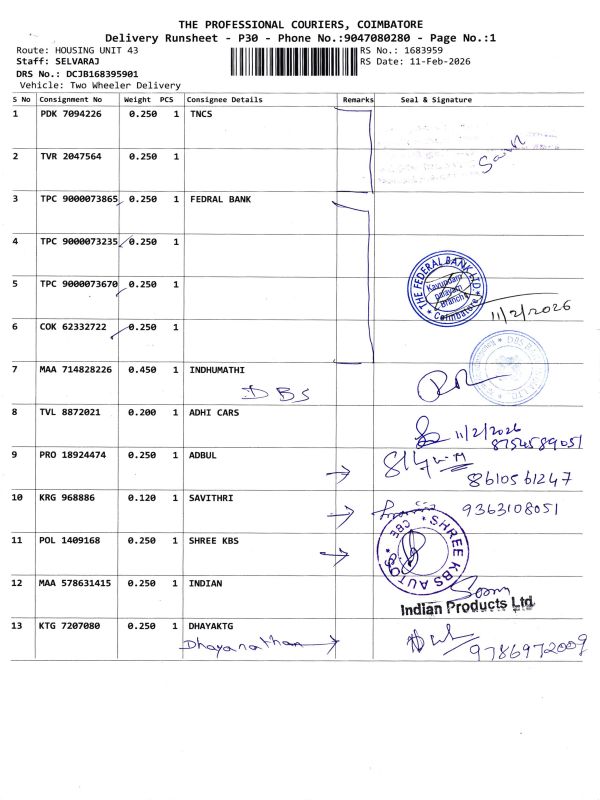 THE PROFESSIONAL COURIERS, COIMBATORE
Delivery Runsheet - P30 - Phone No.:9047080280 - Page No.:1
Route: HOUSING UNIT 43
Staff: SELVARAJ
DRS No.: DCJB168395901
Vehicle: Two Wheeler Delivery
RS No.: 1683959
RS Date: 11-Feb-2026
S No Consignment No Weight PCS Consignee Details Remarks Seal & Signature
1 PDK 7094226 0.250 1 TNCS
2 TVR 2047564 0.250 1
3 TPC 9000073865 0.250 1 FEDRAL BANK
4 TPC 9000073235 0.250 1
5 TPC 9000073670 0.250 1
THE FEDERAL BANK LTD.
Kavundam
palayam
Branch
Coimbatore
11/2/2026
6 COK 62332722 0.250 1
7 MAA 714828226 0.450 1 INDHUMATHI
DBS
8 TVL 8872021 0.200 1 ADHI CARS
11/2/2026
8754589051
9 PRO 18924474 0.250 1 ADBUL
8610561247
10 KRG 968886 0.120 1 SAVITHRI
9363108051
11 POL 1409168 0.250 1 SHREE KBS
SHREE KBS AUTOS CBE
12 MAA 578631415 0.250 1 INDIAN
Indian Products Ltd
13 KTG 7207080 0.250 1 DHAYAKTG
Dhayanathan
9786972009